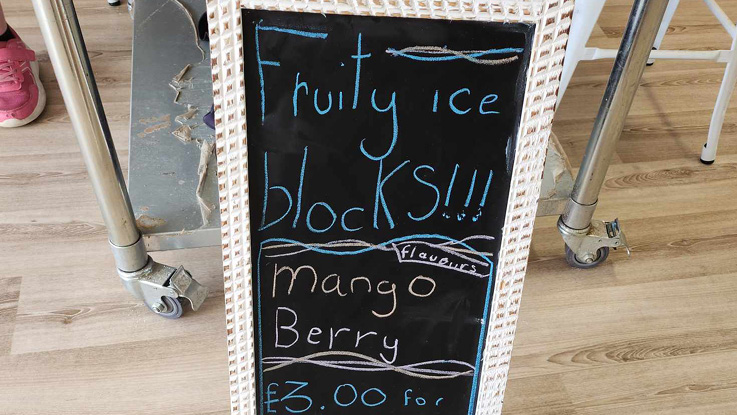 Fruity ice
blocks!!!
flavours
mango
Berry
£3.00 for